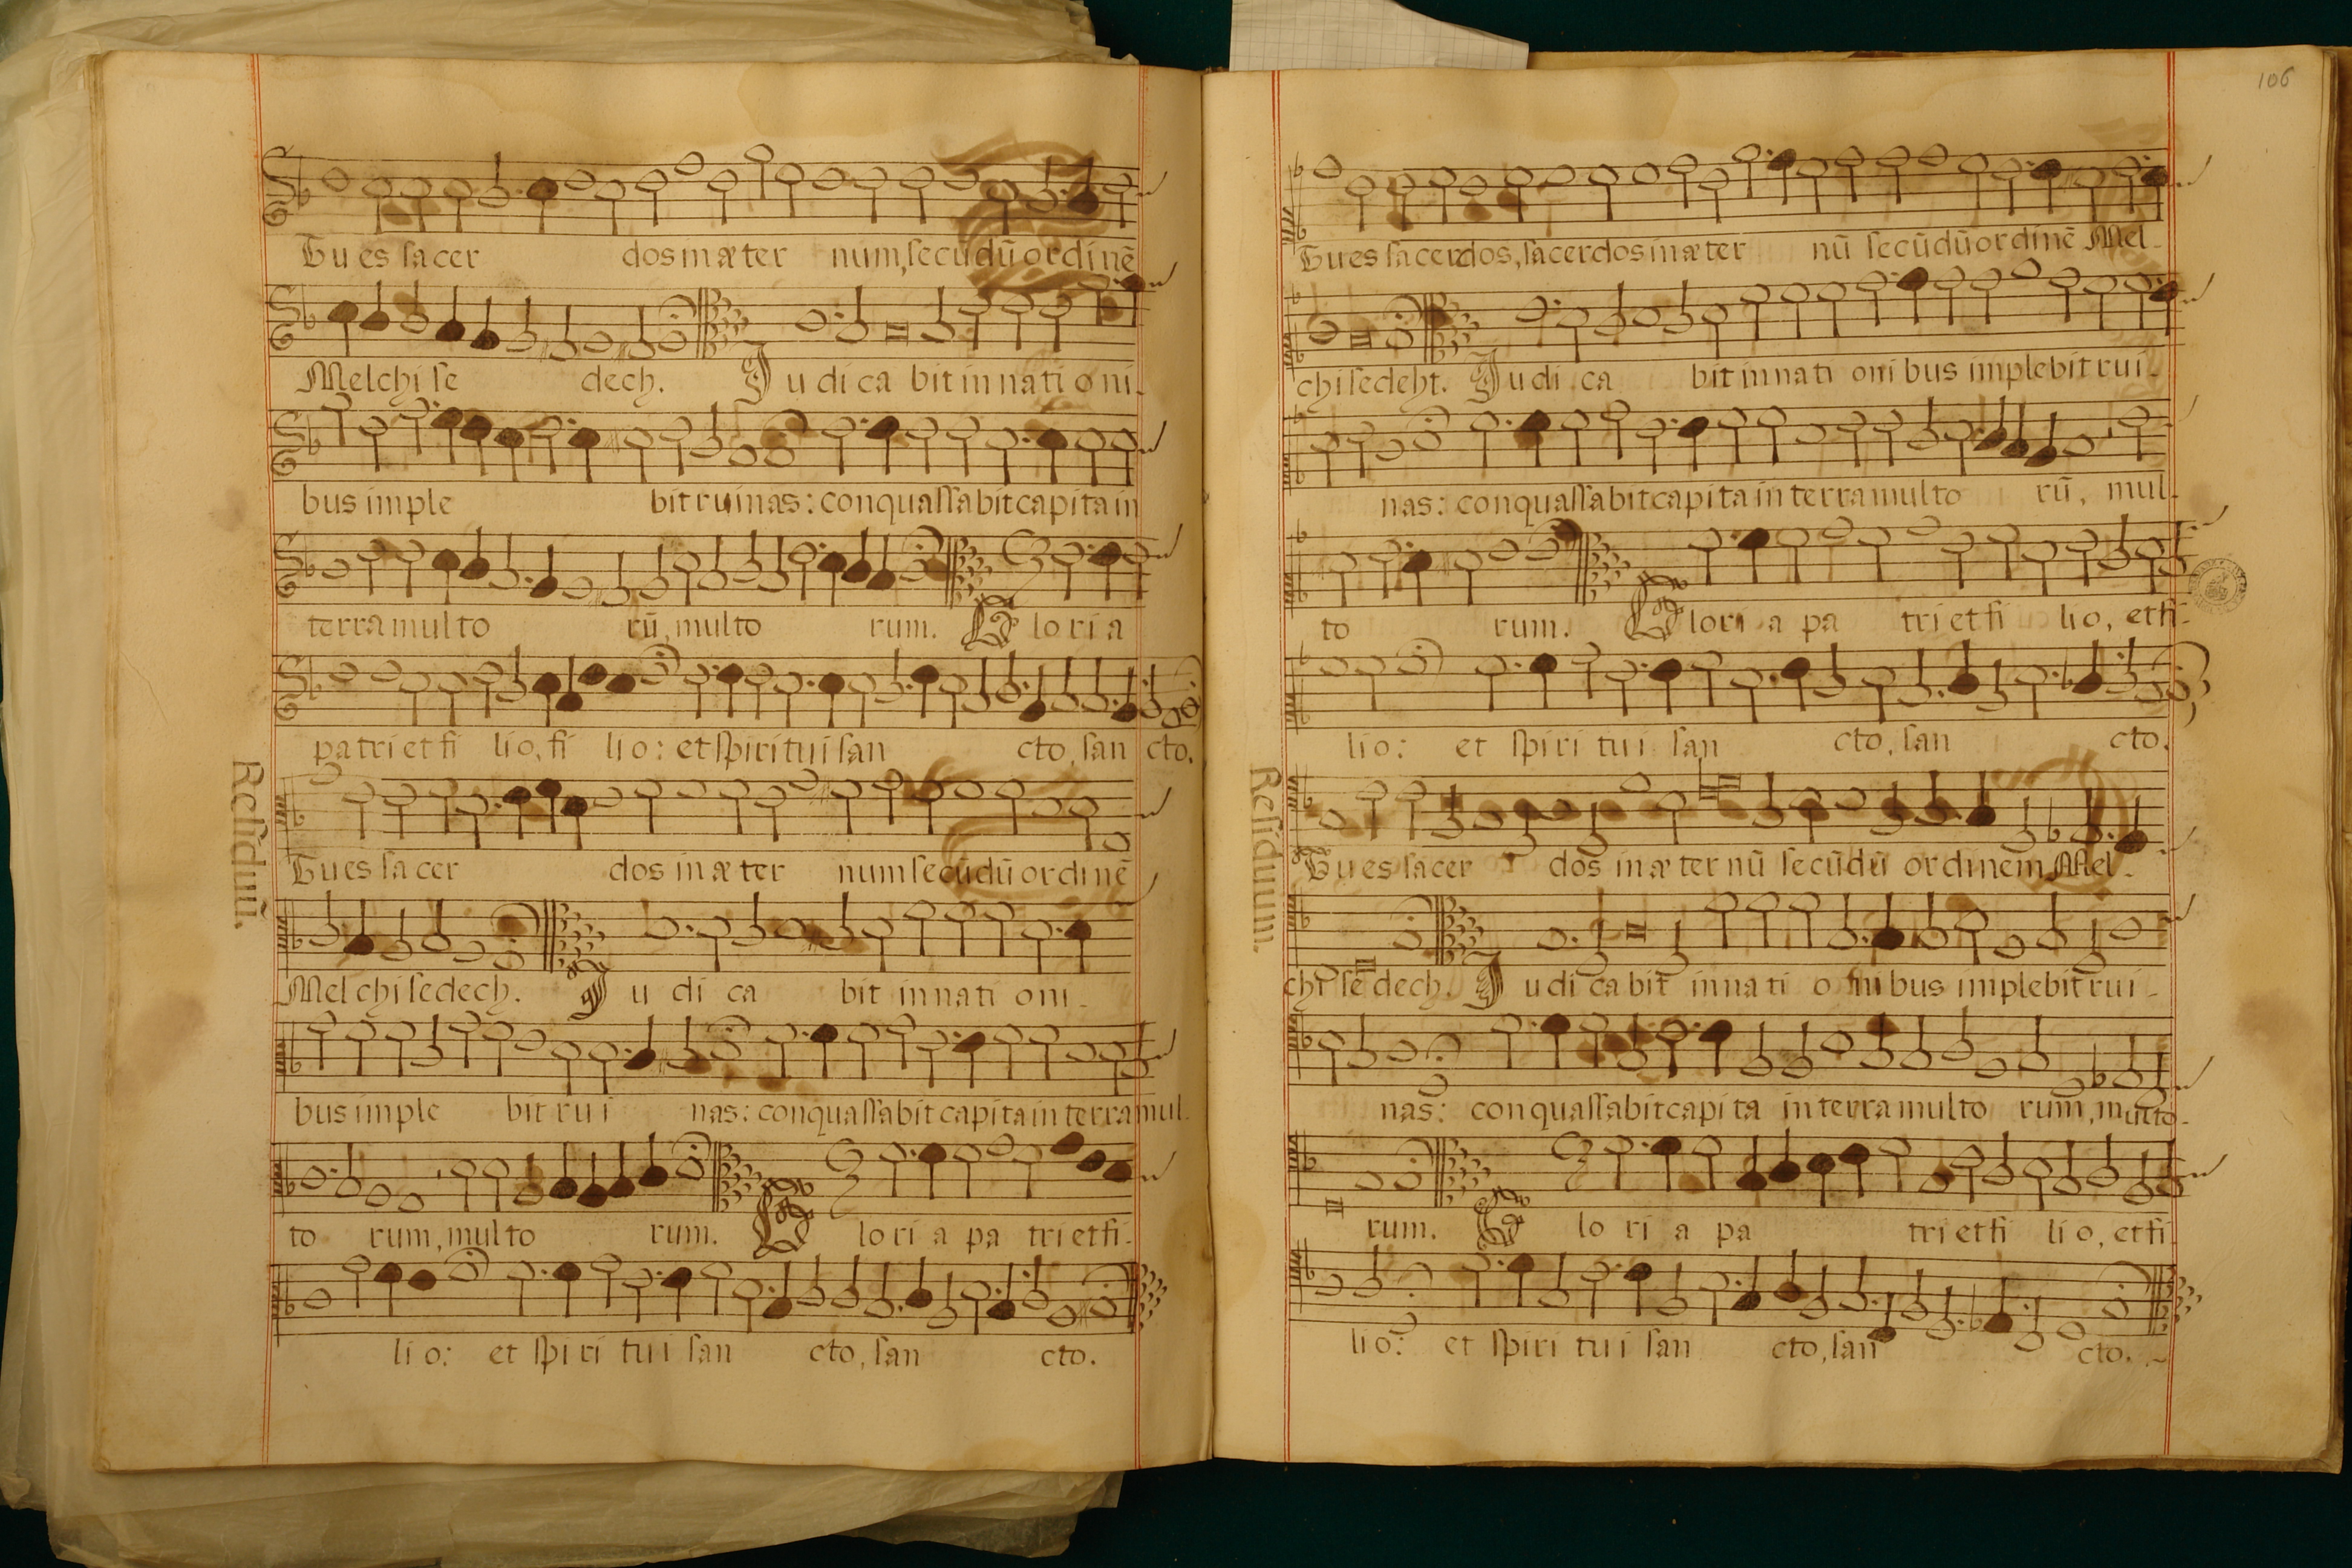 Tu es sacer dos in æter num, secūdū ordinē
Melchise dech. Judica bit in nationi-
bus imple bit ruinas: conquassabit capita in
terra multo rū, multo rum. Gloria
patri et fi lio, fi lio: et spiritui san cto, san cto.
Residuū.
Tu es sacer dos in æter num secūdū ordinē
Melchisedech. Judica bit in nationi-
bus imple bit rui nas: conquassabit capita in terra mul-
to rum, multo rum. Gloria patri et fi-
lio: et spiritui san cto, san cto.
106
Tu es sacerdos, sacerdos in æter nū secūdū ordinē Mel-
chisedeht. Judica bit in nationibus implebit rui-
nas: conquassabit capita in terra multo rū, mul-
to rum. Gloria pa tri et fi lio, et fi-
lio: et spiritui san cto, san cto.
Residuum.
Tu es sacer dos in æternū secūdū ordinem Mel-
chisedech. Judicabit in nationibus implebit rui-
nas: conquassabit capita in terra multo rum, multo-
rum. Gloria pa tri et fi lio, et fi
lio: et spiritui san cto, san cto.